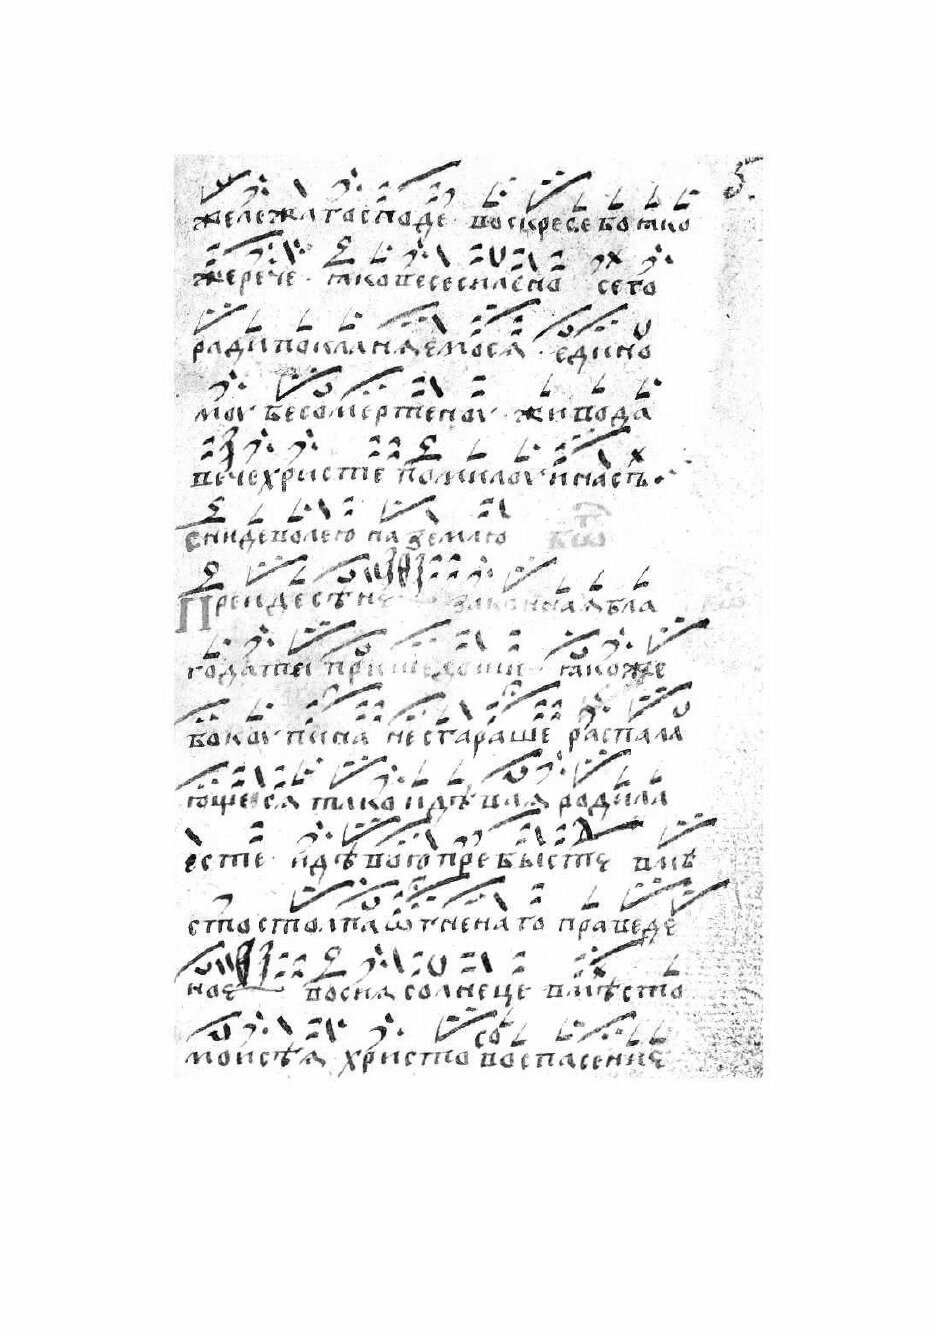 жележалгосподе воскресебоꙗко
жерече ꙗковесеснасно сего
радипокланѧемосѧ едино
моу бесомертеноу живода
вечехристе помилоуинасъ.
снидеволею на землю
Преидесѣне законнаѧбла
годатеи пришедоши ꙗкоже
бокоупина несгараше распала
ющесѧ тако идѣваѧ родила
есте идѣвоюпребысте вмѣ
стостолпаѡгненаго праведе
ное восиѧ солнеце вмѣсто
моисѣѧ христо воспасение